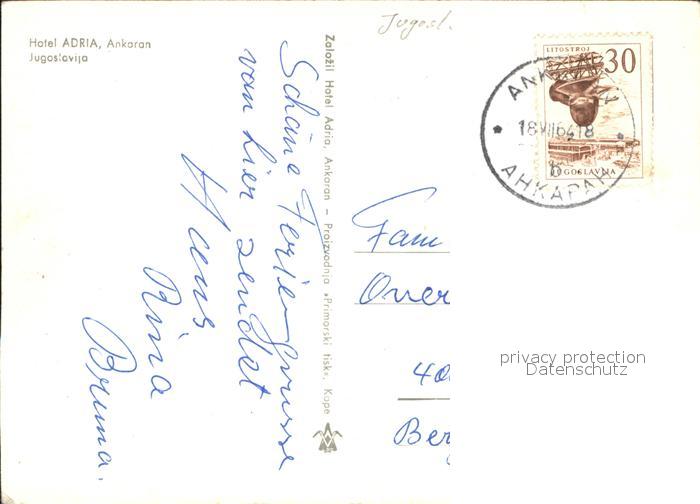 Hotel ADRIA, Ankaran
Jugoslavija
Jugosl.
Založil Hotel Adria, Ankaran – Proizvodnja »Primorski tisk«, Kope
LITOSTROJ
30
JUGOSLAVIJA
ANKARAN
18VII64.18
АНКАРАН
Schöne Ferien-Grüsse
von hier sendet
Hans
Rina
Bruna.
Fam
Over
40
Ber
privacy protection
Datenschutz